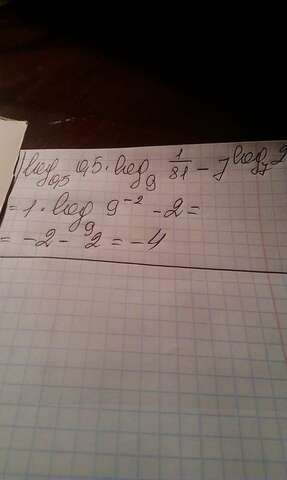 log₀,₅ 0,5 · log₉ 1/81 - 7^log₇ 2
= 1 · log₉ 9⁻² - 2 =
= -2 - 2 = -4